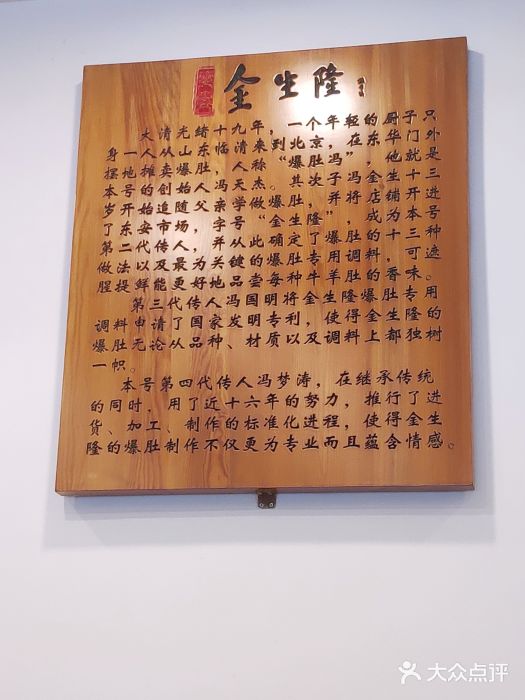 金生隆
大清光绪十九年，一个年轻的厨子只
身一人从山东临清来到北京，在东华门外
摆地摊卖爆肚，人称“爆肚冯”，他就是
本号的创始人冯天杰。其次子冯金生十三
岁开始追随父亲学做爆肚，并将店铺开进
了东安市场，字号“金生隆”，成为本号
第二代传人，并从此确定了爆肚的十三种
做法以及最为关键的爆肚专用调料，可遮
腥提鲜能更好地品尝每种牛羊肚的香味。
第三代传人冯国明将金生隆爆肚专用
调料申请了国家发明专利，使得金生隆的
爆肚无论从品种、材质以及调料上都独树
一帜。
本号第四代传人冯梦涛，在继承传统
的同时，用了近十六年的努力，推行了进
货、加工、制作的标准化进程，使得金生
隆的爆肚制作不仅更为专业而且蕴含情感。
大众点评